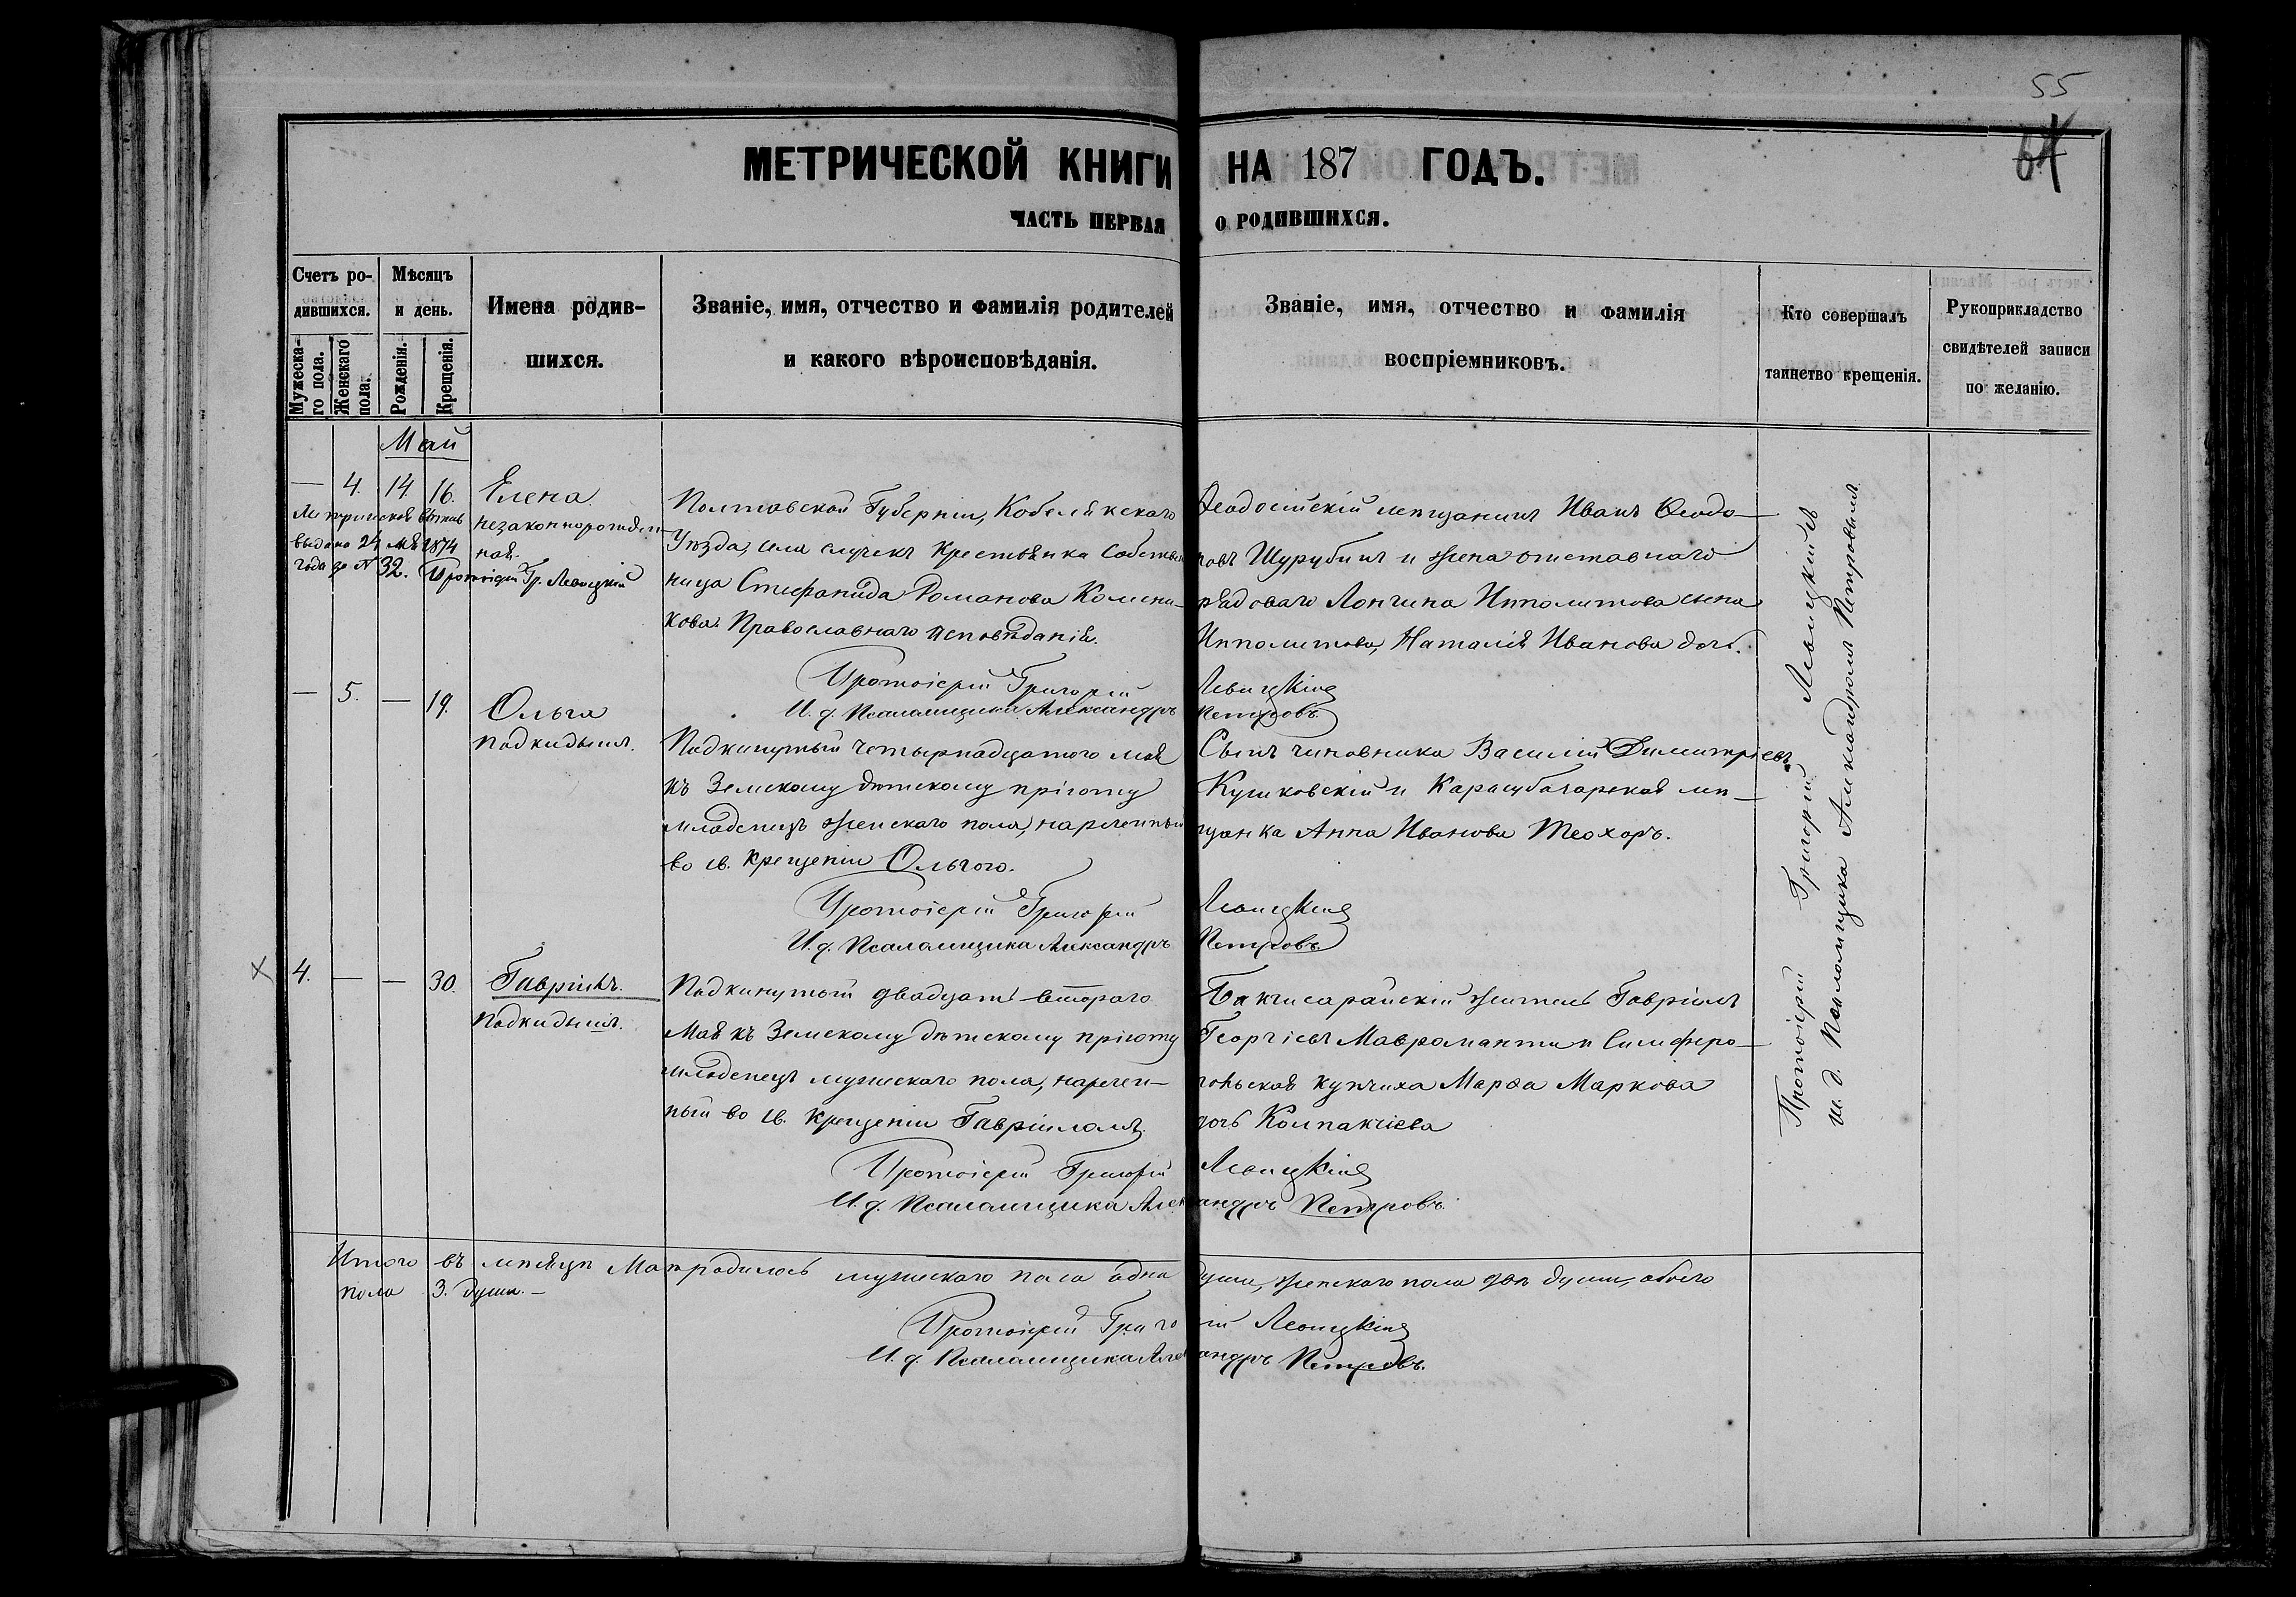 55
64
МЕТРИЧЕСКОЙ КНИГИ НА 187 ГОДЪ.
ЧАСТЬ ПЕРВАЯ О РОДИВШИХСЯ.
Счетъ ро-
дившихся.
Мужеска-
го пола.
Женскаго
пола.
Мѣсяцъ
и день.
Рожденія.
Крещенія.
Имена родив-
шихся.
Званіе, имя, отчество и фамилія родителей
и какого вѣроисповѣданія.
Званіе, имя, отчество и фамилія
воспріемниковъ.
Кто совершалъ
таинство крещенія.
Рукоприкладство
свидѣтелей записи
по желанію.
Май
— 4. 14. 16.
Елена
незаконнорожден-
ная.
выдано 24 1874
года за № 32. Протоіерей Гр. Левицкій
Полтавской Губерніи, Кобелякскаго
Уѣзда, села крестьянка собствен
ница Стефанида Романова
кова. Православнаго исповѣданія.
Ѳеодосійскій мѣщанинъ Иванъ Ѳеодо-
ровъ Шурубинъ и жена отставнаго
рядоваго Лонгина Ипполитова сына
Ипполитова, Наталія Иванова дочь.
Протоіерей Григорій Левицкій
И. д. Псаломщика Александръ Петровъ
— 5. — 19.
Ольга
подкидышъ.
Подкинутый четырнадцатого мая
къ Земскому дѣтскому пріюту
младенецъ женскаго пола, нареченный
во св. крещеніи Ольгою.
Сынъ чиновника Василій Димитріевъ
Кушковскій и Карасубазарская мѣ-
щанка Анна Иванова Теохоръ.
Протоіерей Григорій Левицкій
И. д. Псаломщика Александръ Петровъ
х 4. — — 30.
Гавріилъ.
подкидышъ.
Подкинутый двадцать втораго
Мая къ Земскому дѣтскому пріюту
младенецъ мужескаго пола, наречен-
ный во св. крещеніи Гавріиломъ.
Бахчисарайскій житель Гавріилъ
Георгіевъ Мавроманти и Симферо-
польская купчиха Марѳа Маркова
дочь Колпакчіева
Протоіерей Григорій Левицкій
И. д. Псаломщика Александръ Петровъ.
Протоіерей Григорій Левицкій
и. д. Псаломщика Александръ Петровъ
Итого въ мѣсяцѣ Маѣ родилось мужескаго пола одна душа, женскаго пола двѣ души, обоего
пола 3. души. —
Протоіерей Григорій Левицкій
И. д. Псаломщика Александръ Петровъ.